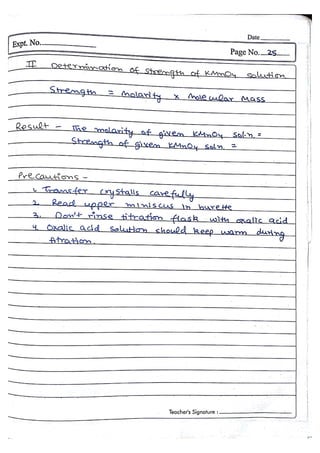 Date
Expt. No.
Page No. 25
II Determination of Strength of KMnO4 solution
Strength = Molarity x Molecular Mass
Result - The molarity of given KMnO4 soln. =
Strength of given KMnO4 soln =
Precautions -
1. Transfer crystalls carefully
2. Read upper miniscus in burette
3. Don't rinse titration flask with oxalic acid
4. Oxalic acid solution should keep warm during
titration.
Teacher's Signature :